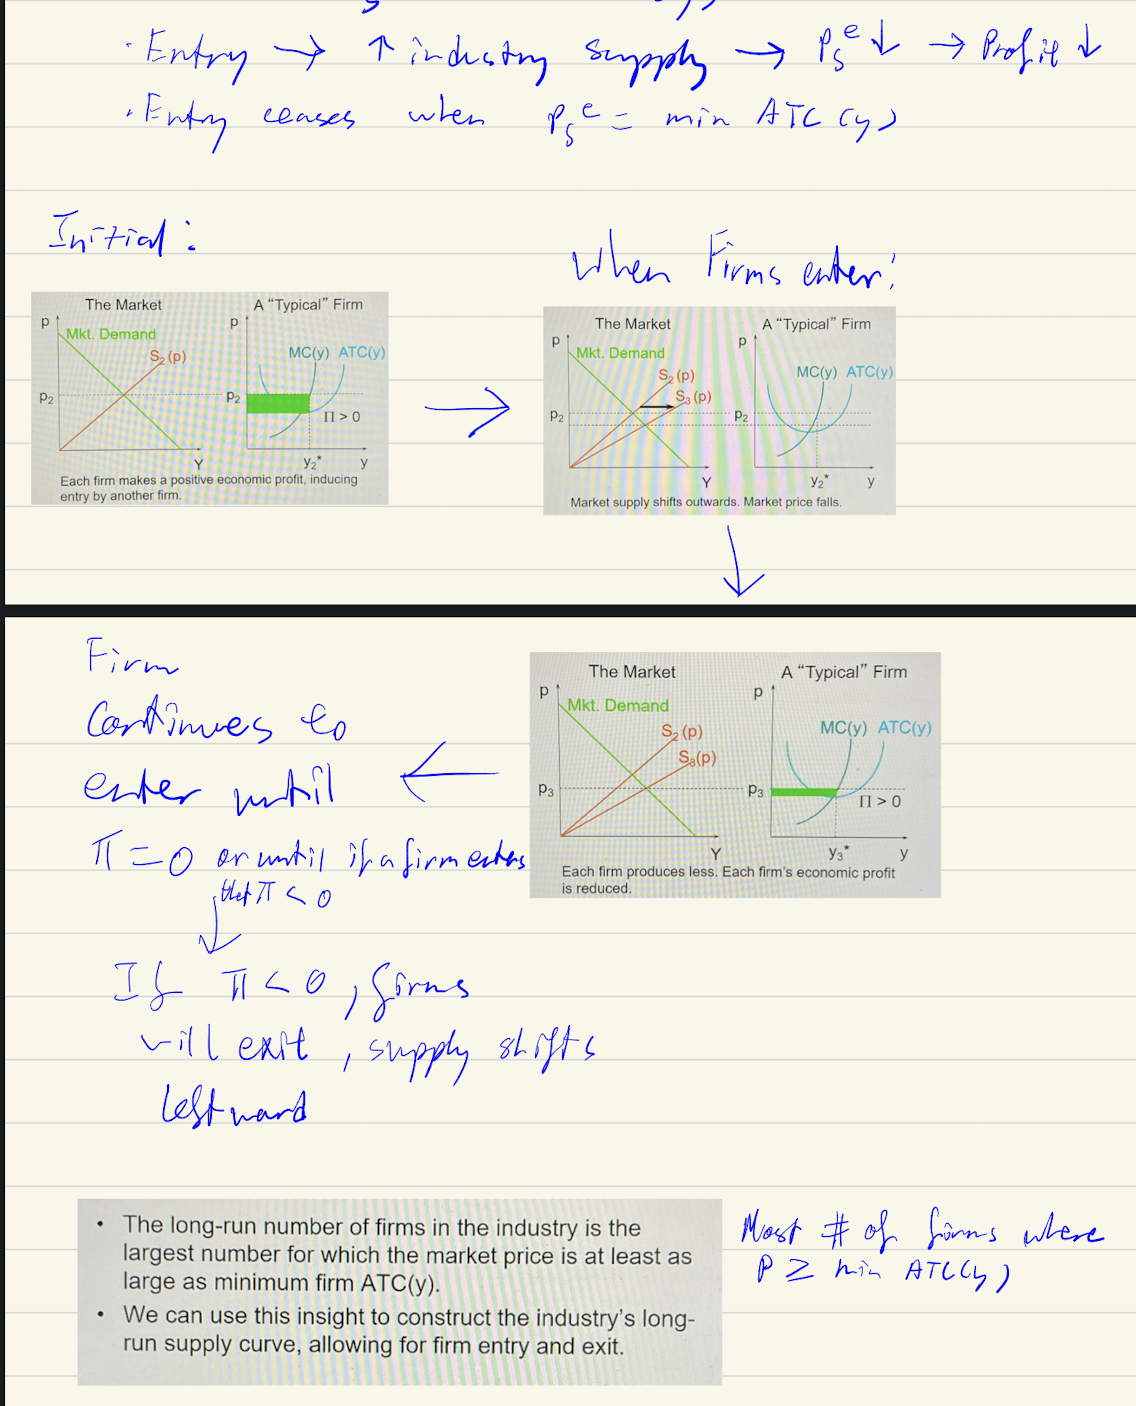 · Entry → ↑ industry supply → Ps^e ↓ → Profit ↓
· Entry ceases when Ps^e = min ATC (y)
Initial:
When Firms enter:
The Market
A “Typical” Firm
p
Mkt. Demand
S₂(p)
p₂
Y
p
MC(y) ATC(y)
p₂
Π > 0
y₂*
y
Each firm makes a positive economic profit, inducing
entry by another firm.
The Market
A “Typical” Firm
p
Mkt. Demand
S₂(p)
S₃(p)
p₂
Y
p
MC(y) ATC(y)
p₂
y₂*
y
Market supply shifts outwards. Market price falls.
The Market
A “Typical” Firm
p
Mkt. Demand
S₂(p)
S₃(p)
p₃
Y
p
MC(y) ATC(y)
p₃
Π > 0
y₃*
y
Each firm produces less. Each firm’s economic profit
is reduced.
Firm
continues to
enter until
π = 0 or until if a firm enters
that π < 0
If π < 0, firms
will exit, supply shifts
leftward
• The long-run number of firms in the industry is the
largest number for which the market price is at least as
large as minimum firm ATC(y).
• We can use this insight to construct the industry’s long-
run supply curve, allowing for firm entry and exit.
Most # of firms where
P ≥ min ATC(y)